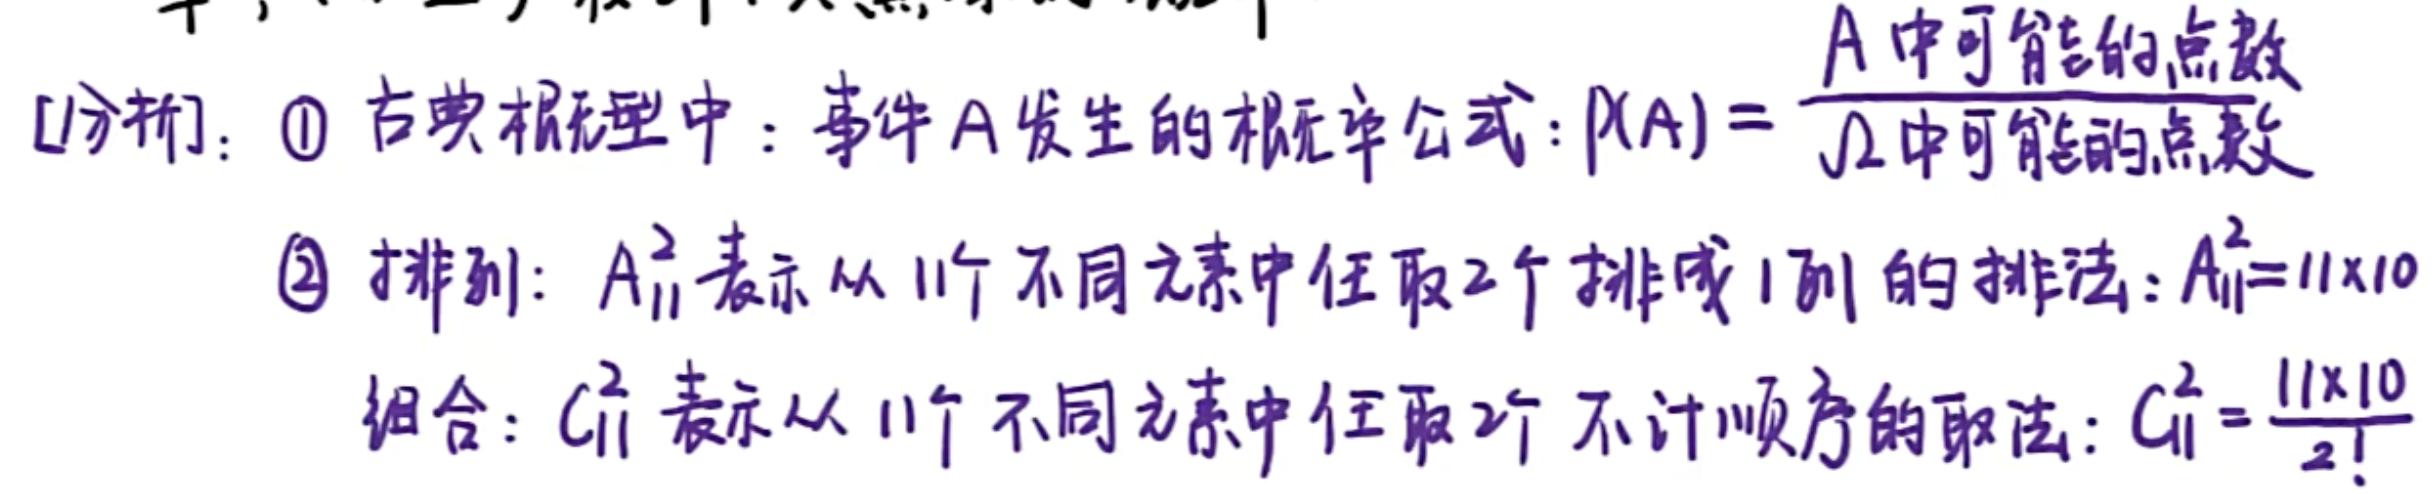 [分析]: ① 古典概型中: 事件A发生的概率公式: P(A) = A中可能的点数 / Ω中可能的点数
② 排列: A₁₁² 表示从11个不同元素中任取2个排成1列的排法: A₁₁²=11×10
组合: C₁₁² 表示从11个不同元素中任取2个不计顺序的取法: C₁₁² = 11×10 / 2!